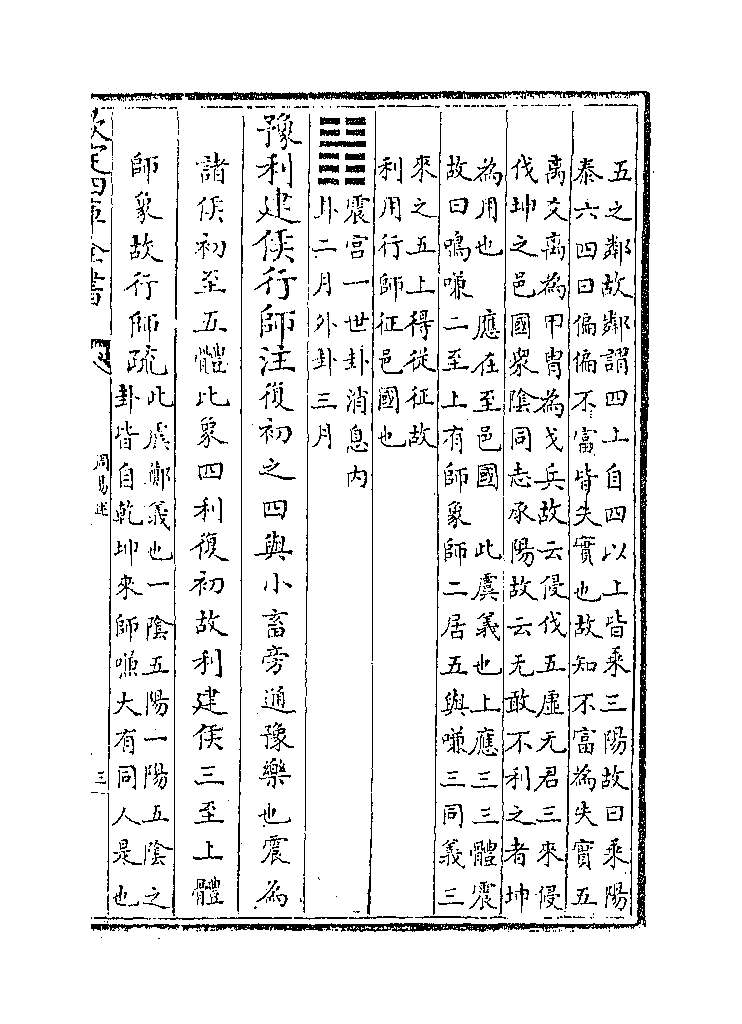 五之鄰故鄰謂四上自四以上皆乘三陽故曰乘陽
泰六四曰偏偏不富皆失實也故知不富為失實五
離爻離為甲冑為戈兵故云侵伐五虛无君三來侵
伐坤之邑國衆陰同志承陽故云无敢不利之者坤
為用也 應在至邑國 此虞義也上應三三體震
故曰鳴嗛二至上有師象師二居五與嗛三同義三
來之五上得從征故
利用行師征邑國也
震宮一世卦消息内
卦二月外卦三月
豫利建侯行師注復初之四與小畜旁通豫樂也震為
諸侯初至五體比象四利復初故利建侯三至上體
師象故行師疏此虞鄭義也一陰五陽一陽五陰之
卦皆自乾坤來師嗛大有同人是也
欽定四庫全書
周易述
三